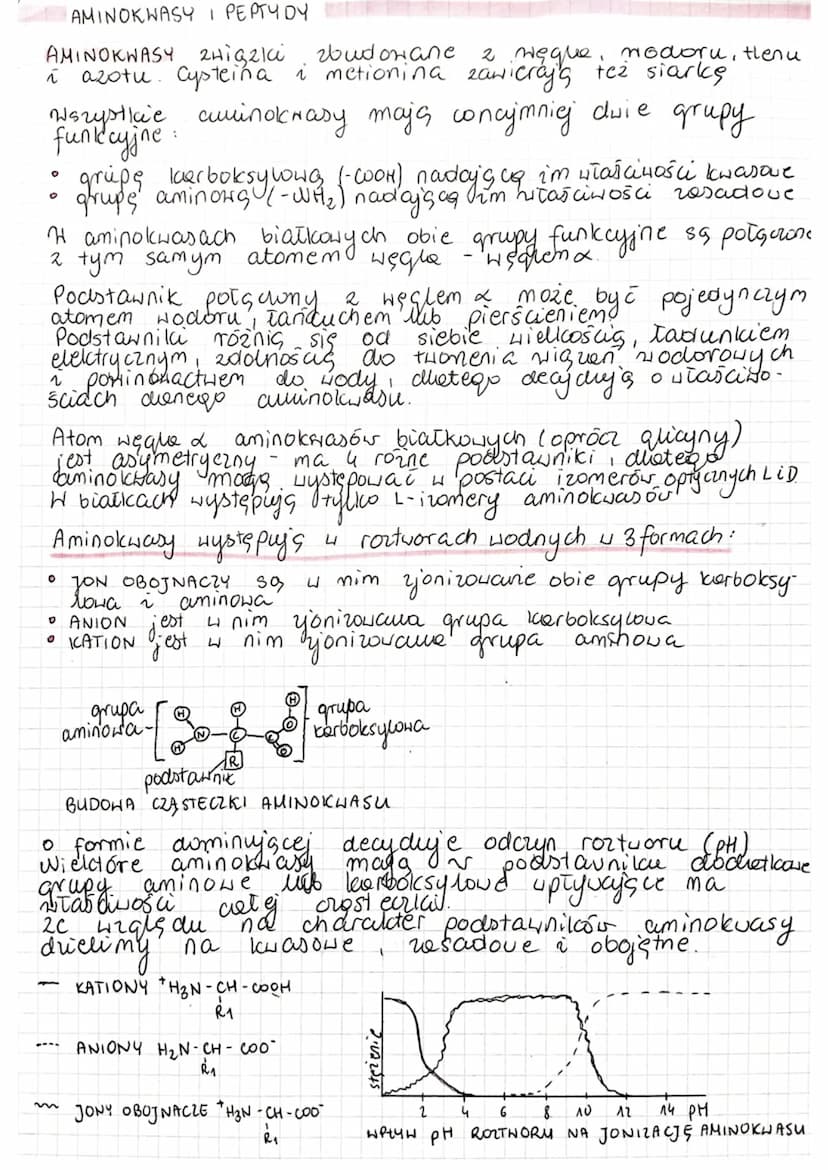 AMINOKWASY I PEPTYDY
AMINOKWASY związki zbudowane z węgla, wodoru, tlenu
i azotu. Cysteina i metionina zawierają też siarkę
Wszystkie aminokwasy mają conajmniej dwie grupy
funkcyjne:
• grupę karboksylową (-COOH) nadającą im właściwości kwasowe
• grupę aminową (-NH₂) nadającą im właściwości zasadowe
W aminokwasach białkowych obie grupy funkcyjne są połączone
z tym samym atomem węgla - węglem α.
Podstawnik połączony z węglem α może być pojedynczym
atomem wodoru, łańcuchem lub pierścieniem
Podstawniki różnią się od siebie wielkością, ładunkiem
elektrycznym, zdolnością do tworzenia wiązań wodorowych
i powinowactwem do wody, dlatego decydują o właściwo-
ściach danego aminokwasu.
Atom węgla α aminokwasów białkowych (oprócz glicyny)
jest asymetryczny - ma 4 różne podstawniki, dlatego
aminokwasy mogą występować w postaci izomerów optycznych L i D
W białkach występują tylko L-izomery aminokwasów
Aminokwasy występują w roztworach wodnych w 3 formach:
• JON OBOJNACZY są w nim zjonizowane obie grupy karboksy-
lowa i aminowa
• ANION jest w nim zjonizowana grupa karboksylowa
• KATION jest w nim zjonizowana grupa aminowa
grupa
aminowa
H H H
H N C C O O
R
grupa
karboksylowa
podstawnik
BUDOWA CZĄSTECZKI AMINOKWASU
o formie dominującej decyduje odczyn roztworu (pH)
Wielktóre aminokwasy mają w podstawniku dodatkowe
grupy aminowe lub karboksylowe wpływające na
właściwości całej cząsteczki.
ze względu na charakter podstawników aminokwasy
dzielimy na kwasowe, zasadowe i obojętne.
— KATIONY ⁺H₃N-CH-COOH
R₁
---- ANIONY H₂N-CH-COO⁻
R₁
~ JONY OBOJNACZE ⁺H₃N-CH-COO⁻
R₁
stężenie
2 4 6 8 10 12 14 pH
WPŁYW pH ROZTWORU NA JONIZACJĘ AMINOKWASU